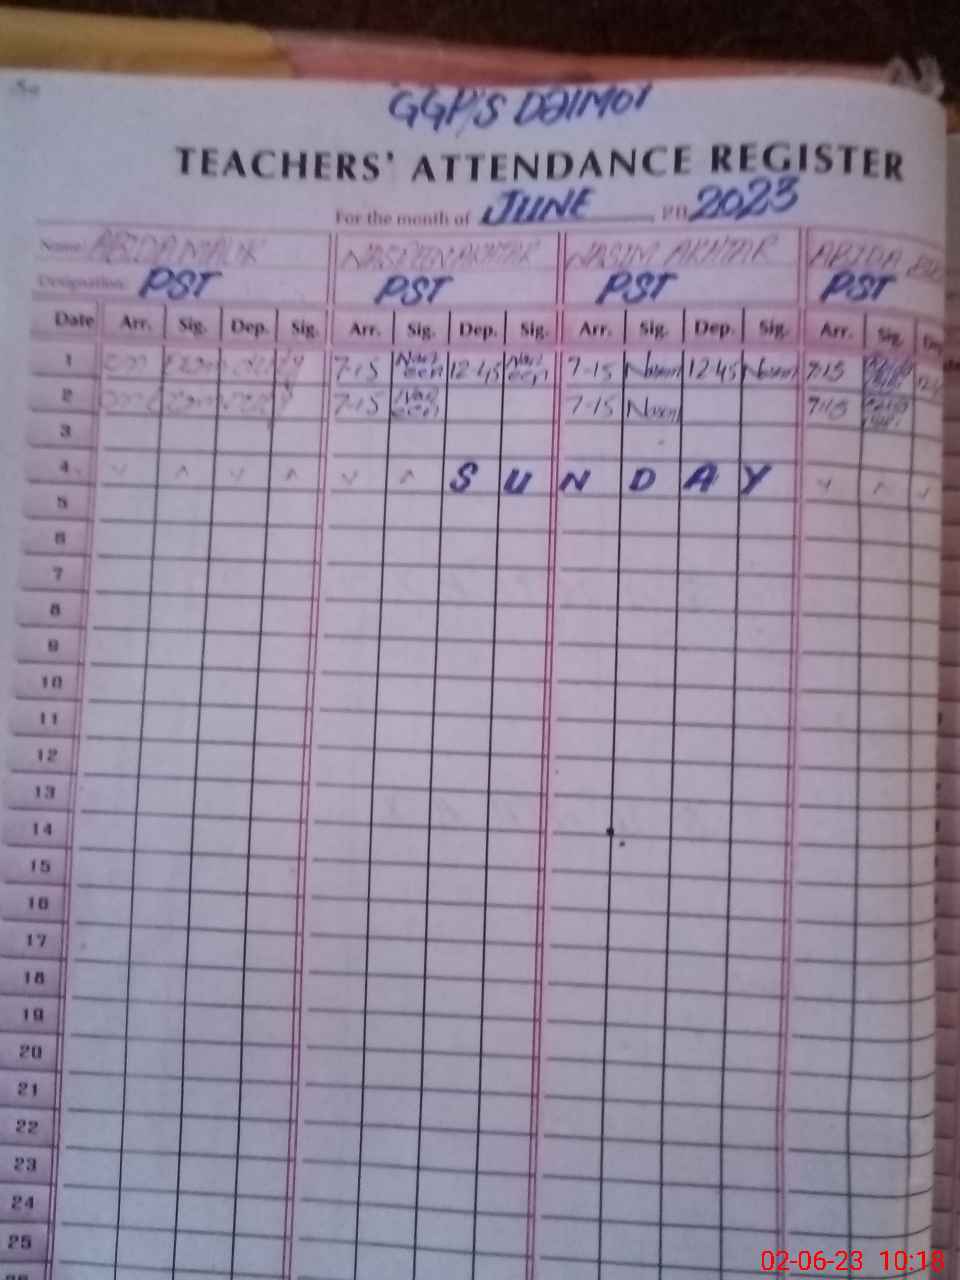 GGP/S DaIMOI
TEACHERS' ATTENDANCE REGISTER
For the month of JUNE 2023
Name ABIDA MALIK NASREEN AKHTAR NASIM AKHTAR ABIDA
Designation PST PST PST PST
Date Arr. Sig. Dep. Sig. Arr. Sig. Dep. Sig. Arr. Sig. Dep. Sig. Arr. Sig.
1 7-15 Nasreen 12-45 Nasreen 7-15 Nasim 12-45 Nasim 7-15
2 7-15 Nasreen 7-15 Nasim 7-15
3
4 S U N D A Y
5
6
7
8
9
10
11
12
13
14
15
16
17
18
19
20
21
22
23
24
25
02-06-23 10:18